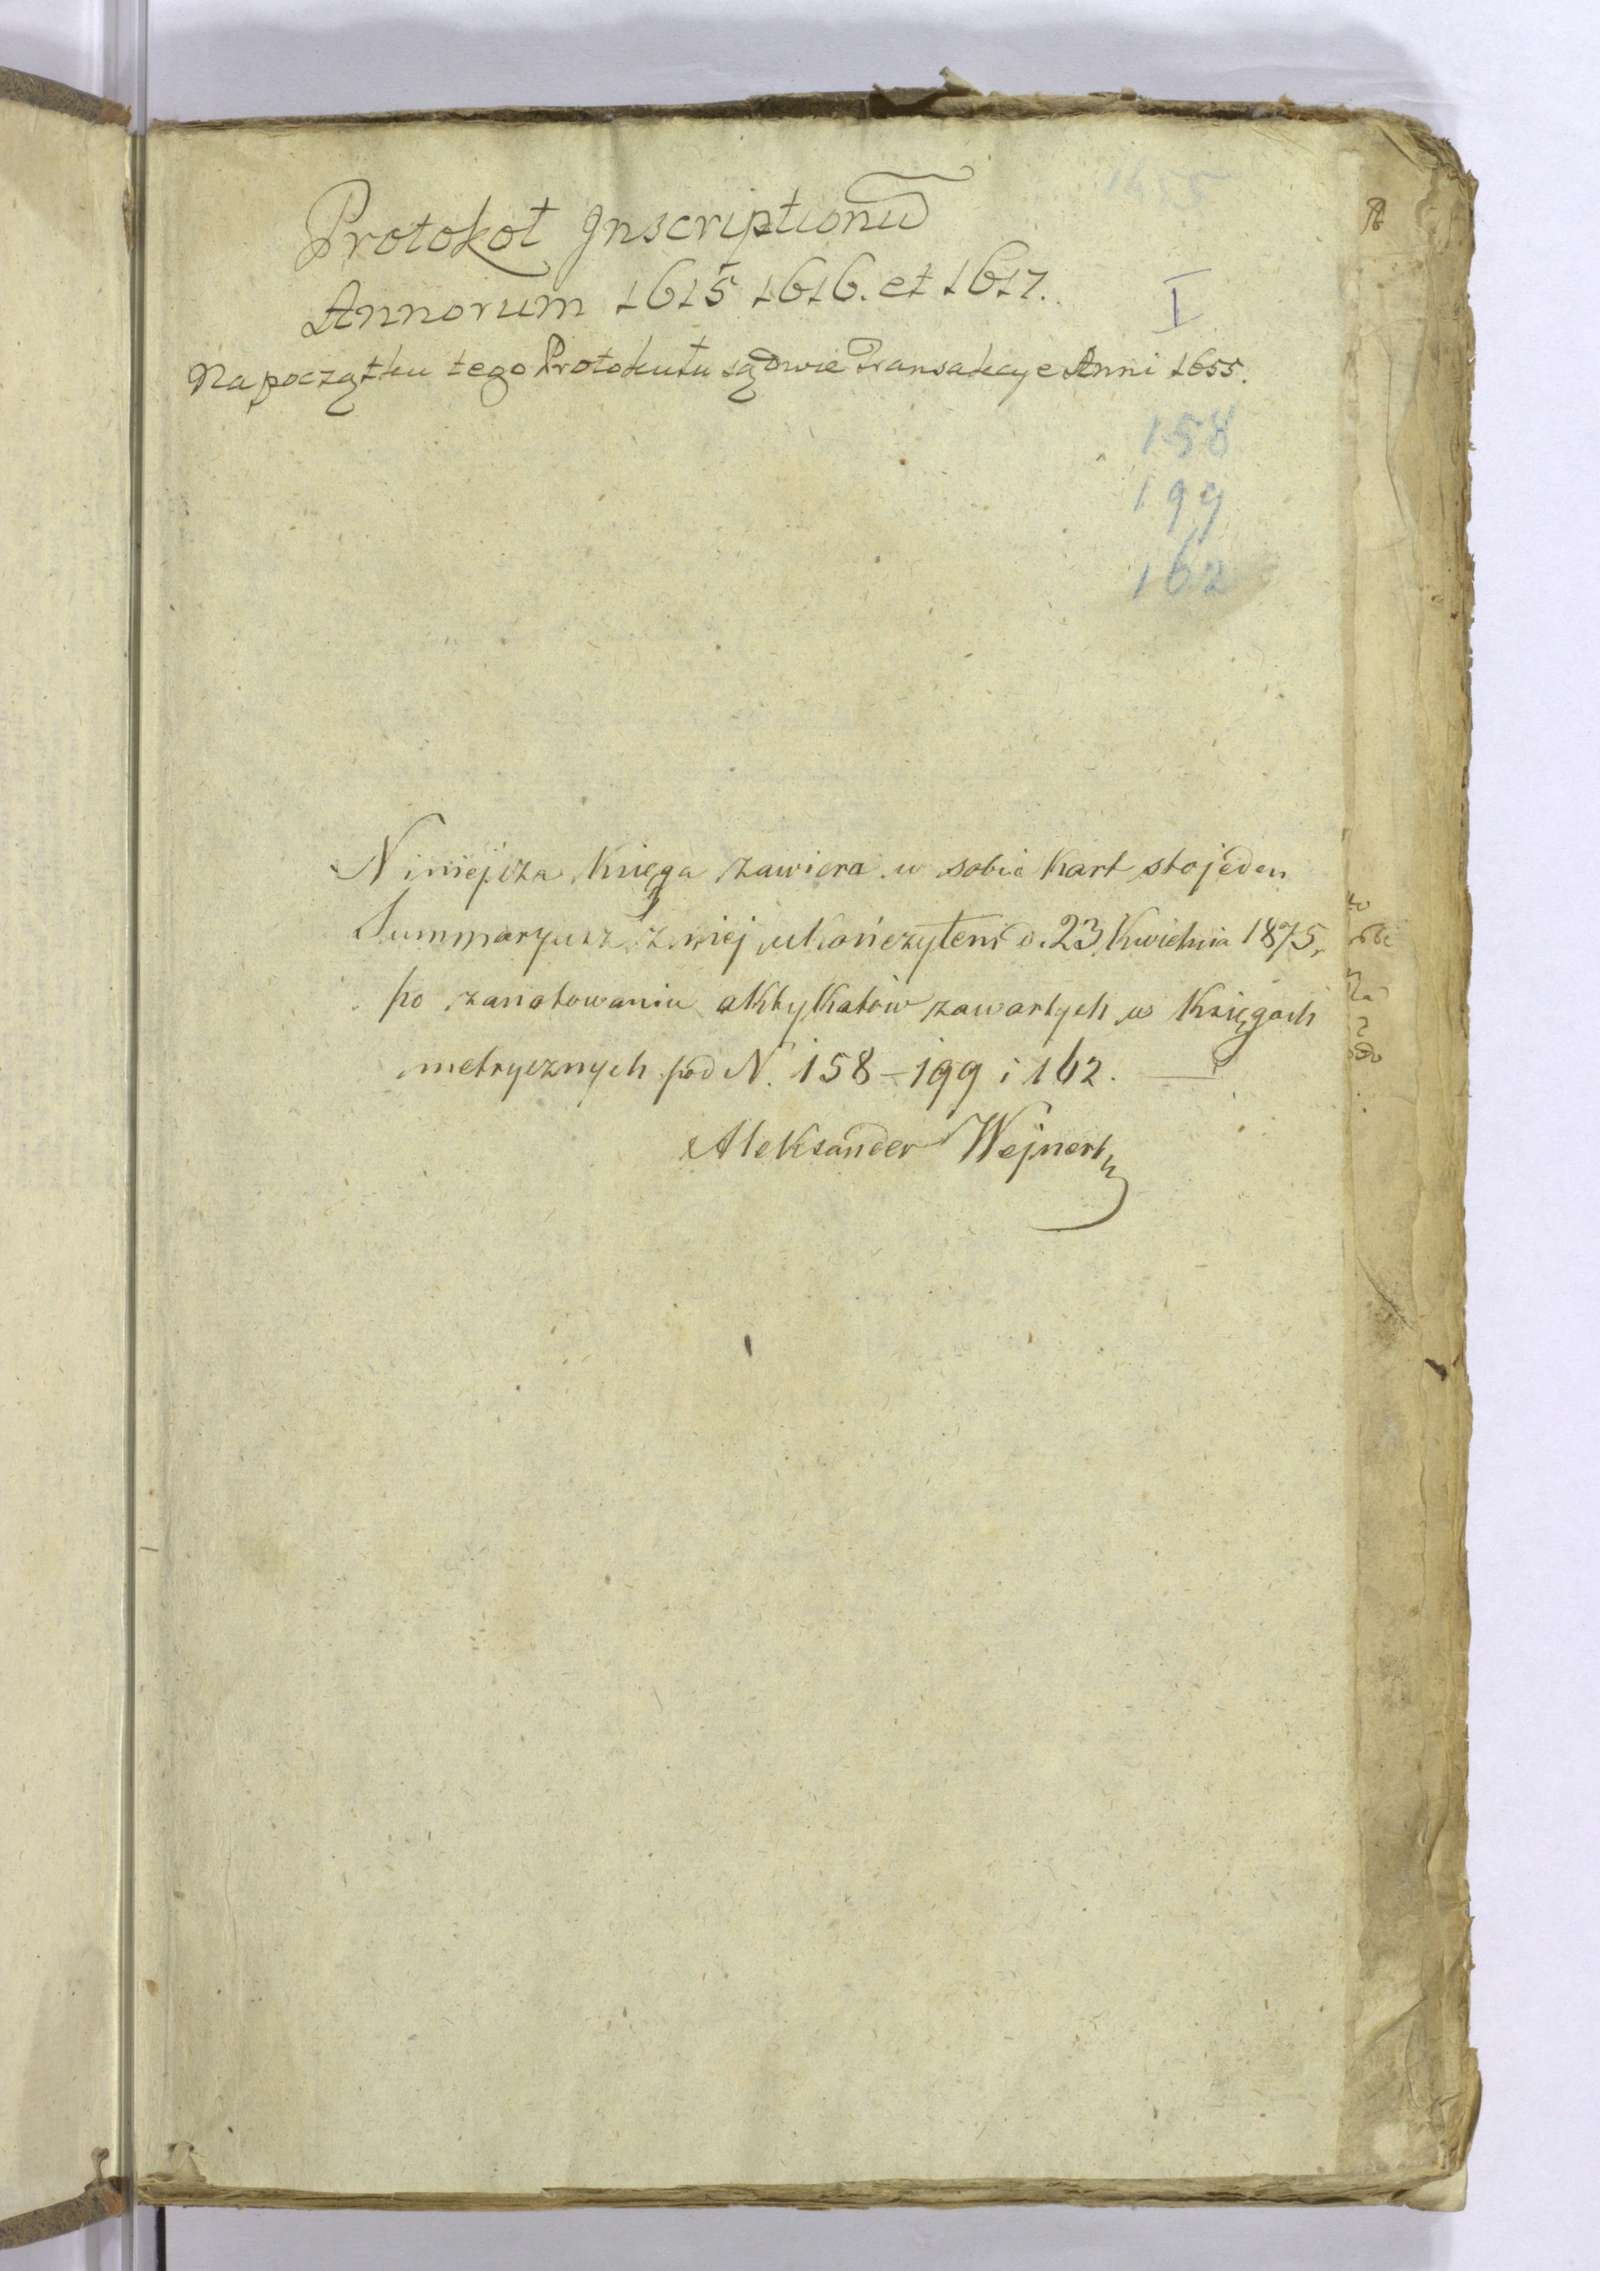 1655
Protokoł Inscriptionũ
Annorum 1615 1616. et 1617.
I
Na początku tego Protokułu są dwie Transakcye Anni 1655.
158
199
162
Niniejsza Księga zawiera w sobie Kart sto jeden
Summaryusz z niej ukończyłem d. 23 Kwietnia 1875,
po zanotowaniu aktykatów zawartych w Księgach
metrycznych pod N. 158 – 199 i 162. —
Aleksander Wejnert